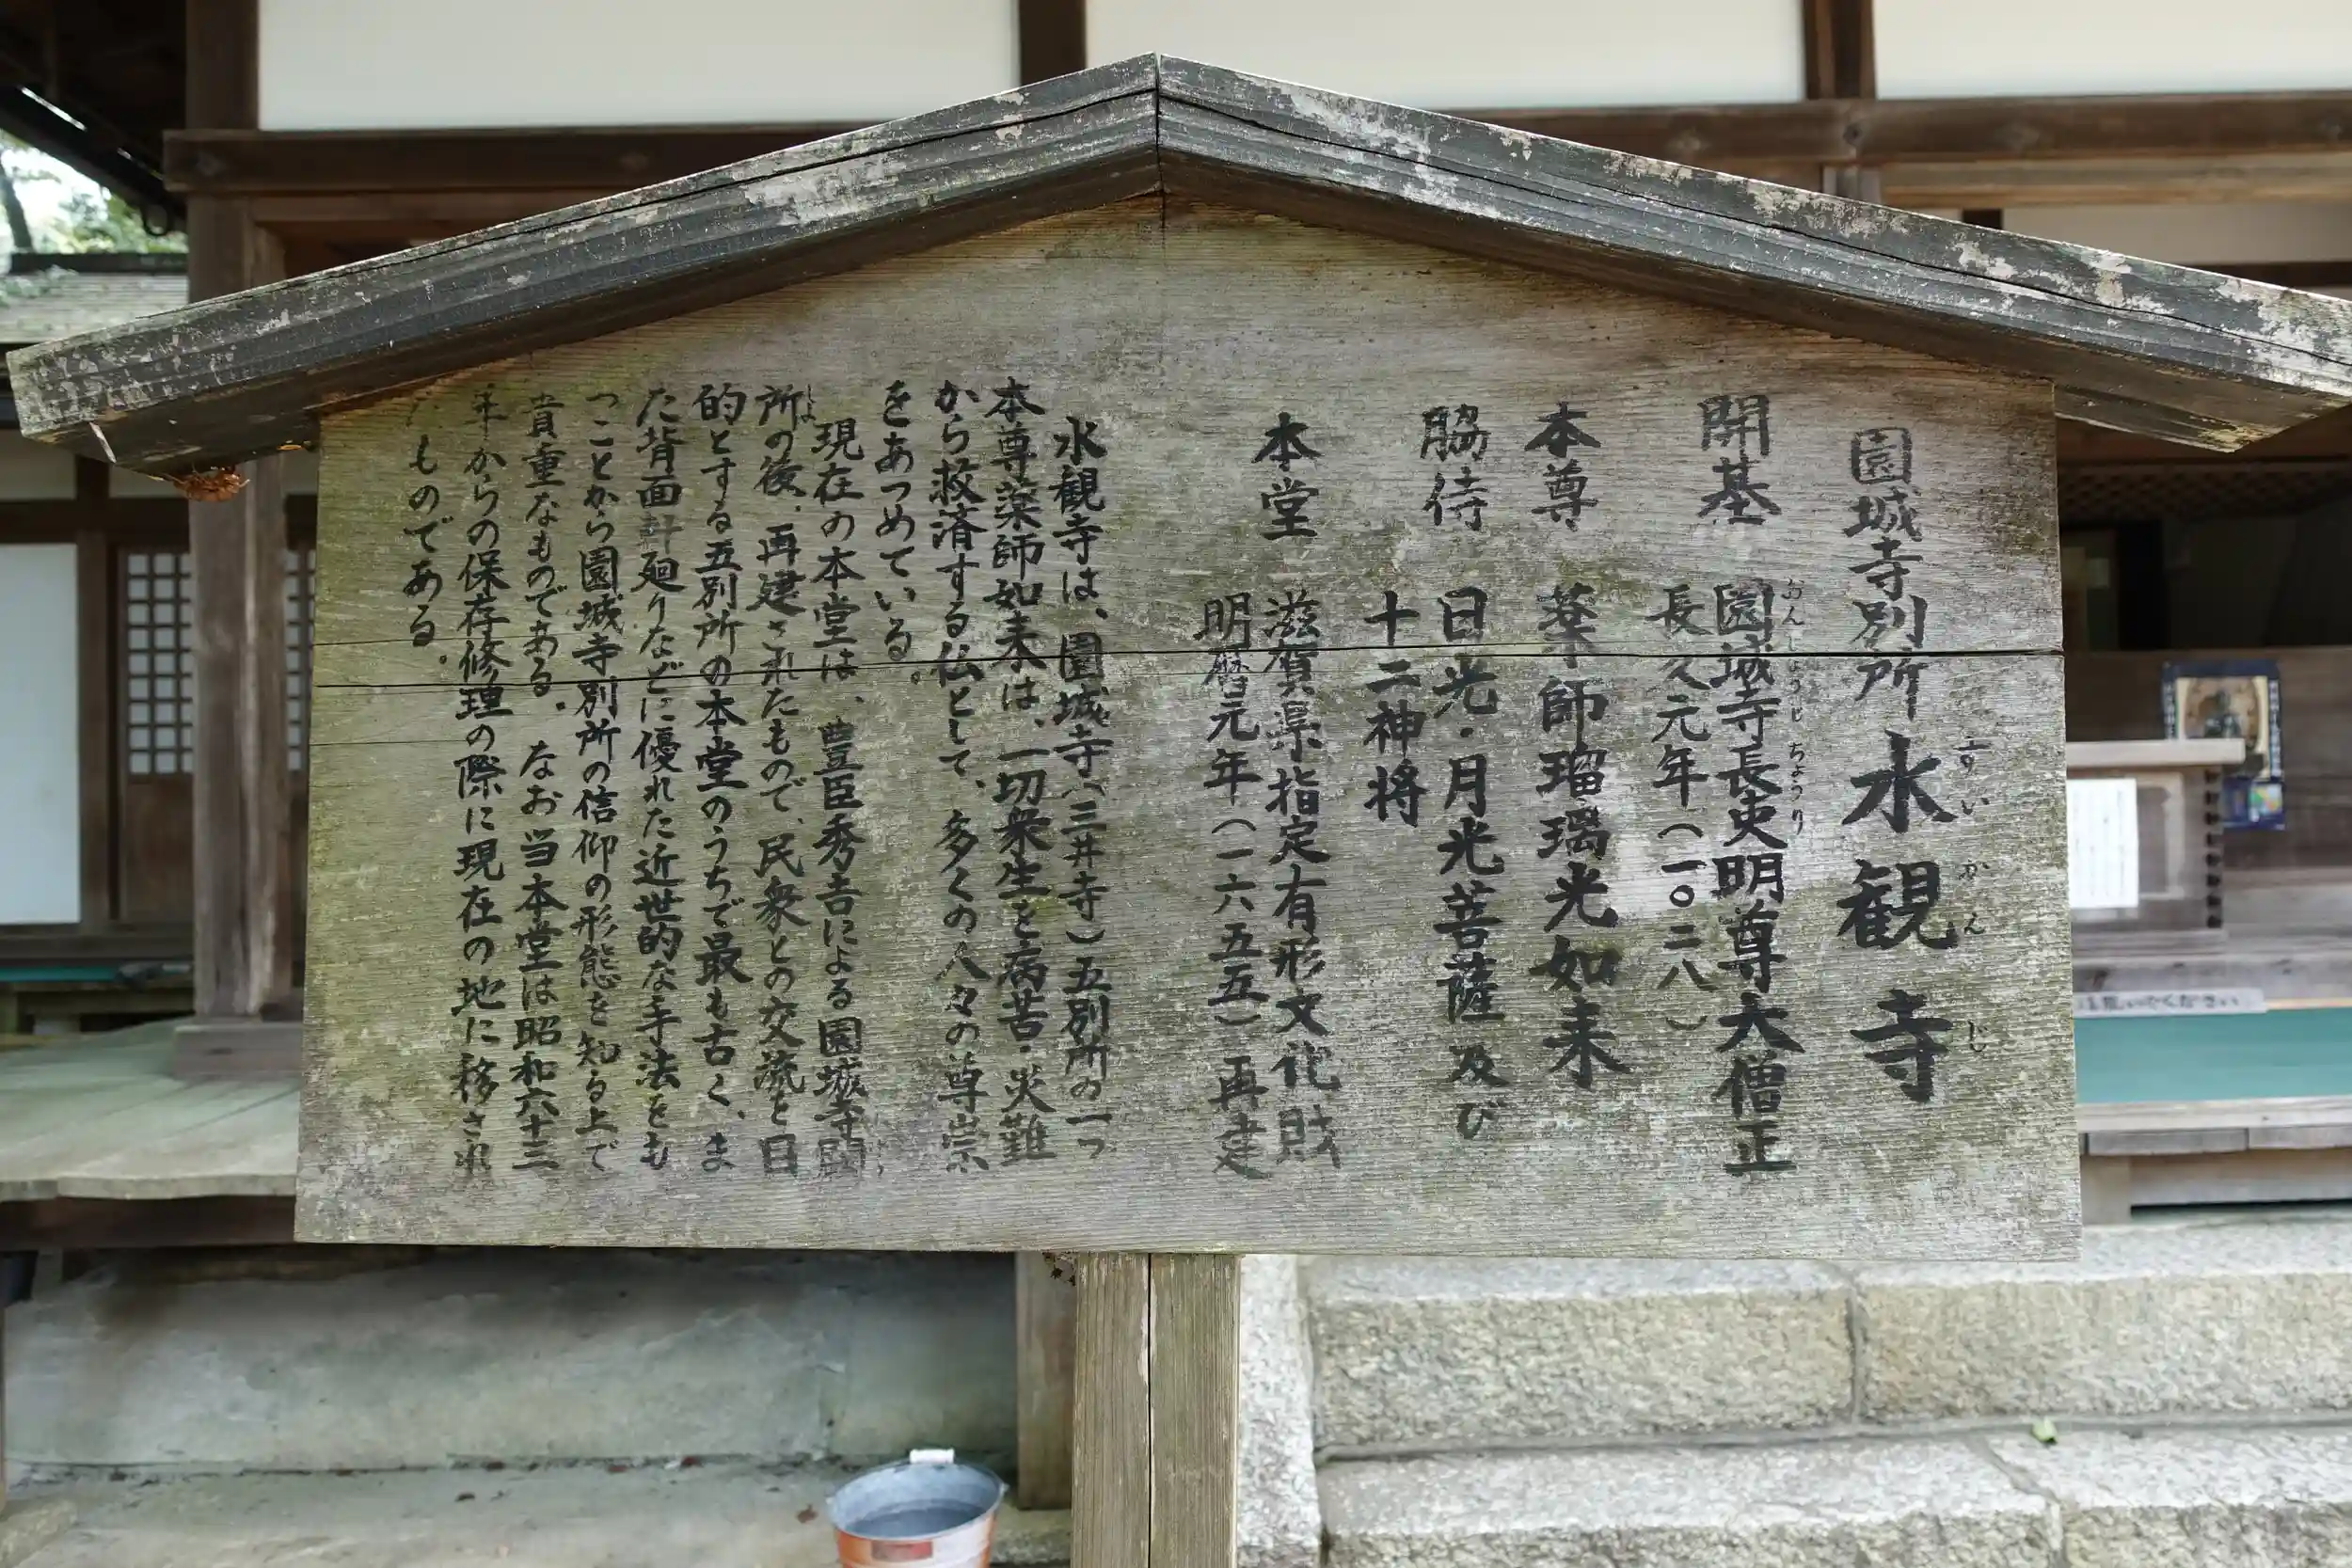 園城寺別所 水観寺
すいかんじ
開基 園城寺長吏明尊大僧正
おんじょうじ ちょうり
長久元年(一〇二八)
本尊 薬師瑠璃光如来
脇侍 日光・月光菩薩及び
十二神将
本堂 滋賀県指定有形文化財
明暦元年(一六五五)再建
水観寺は、園城寺(三井寺)五別所の一つ
本尊薬師如来は、一切衆生を病苦・災難
から救済する仏として、多くの人々の尊崇
をあつめている。
現在の本堂は、豊臣秀吉による園城寺闕
所の後、再建されたもので、民衆との交流を目
的とする五別所の本堂のうちで最も古く、ま
た背面計廻りなどに優れた近世的な手法をも
つことから園城寺別所の信仰の形態を知る上で
貴重なものである。なお当本堂は昭和六十三
年からの保存修理の際に現在の地に移され
たものである。